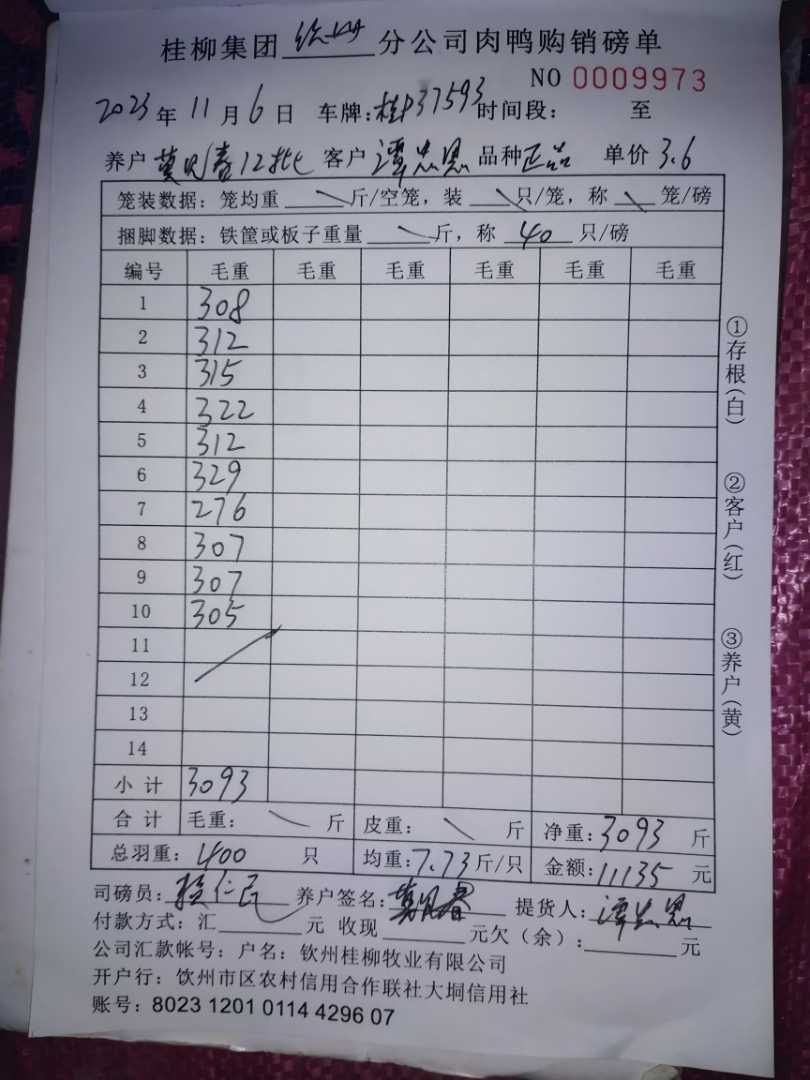 桂柳集团 钦州 分公司肉鸭购销磅单
NO 0009973
2023年 11月 6日 车牌:桂P37593 时间段: 至
养户 莫 春12批 客户 谭忠恩 品种 正品 单价 3.6
笼装数据: 笼均重 斤/空笼, 装 只/笼, 称 笼/磅
捆脚数据: 铁筐或板子重量 斤, 称 40 只/磅
编号 毛重 毛重 毛重 毛重 毛重 毛重
1 308
2 312
3 315
4 322
5 312
6 329
7 276
8 307
9 307
10 305
11
12
13
14
小计 3093
合计 毛重: 斤 皮重: 斤 净重:3093 斤
总羽重: 400 只 均重:7.73斤/只 金额:11135 元
司磅员: 仁民 养户签名: 莫 春 提货人: 谭忠恩
付款方式: 汇 元 收现 元欠(余): 元
公司汇款帐号: 户名: 钦州桂柳牧业有限公司
开户行: 钦州市区农村信用合作联社大垌信用社
账号: 8023 1201 0114 4296 07
①存根(白)
②客户(红)
③养户(黄)